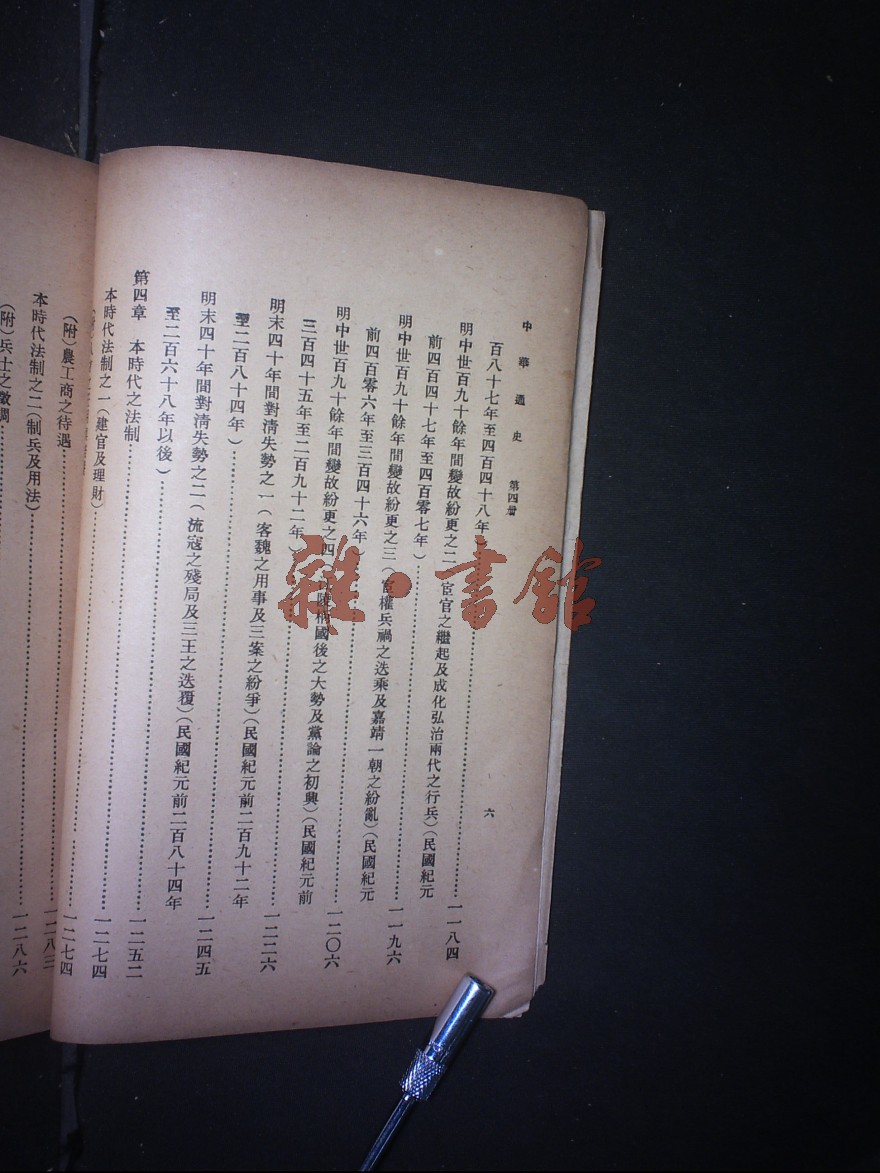 中華通史 第四冊 六
百八十七年至四百四十八年）
明中世百九十餘年間變故紛更之二 宦官之繼起及成化弘治兩代之行兵）（民國紀元
前四百四十七年至四百零七年）……一一八四
明中世百九十餘年間變故紛更之三（宦權兵禍之迭乘及嘉靖一朝之紛亂）（民國紀元
前四百零六年至三百四十六年）……一一九六
明中世百九十餘年間變故紛更之四 柄國後之大勢及黨論之初興）（民國紀元前
三百四十五年至二百九十二年）……一二〇六
明末四十年間對清失勢之一（客魏之用事及三案之紛爭）（民國紀元前二百九十二年
至二百八十四年）……一二二六
明末四十年間對清失勢之二（流寇之殘局及三王之迭覆）（民國紀元前二百八十四年
至二百六十八年以後）……一二四五
第四章 本時代之法制……一二五二
本時代法制之一（建官及理財）……一二七四
（附）農工商之待遇……一二七四
本時代法制之二（制兵及用法）……一二八三
（附）兵士之徵調……一二八六
雜·書館